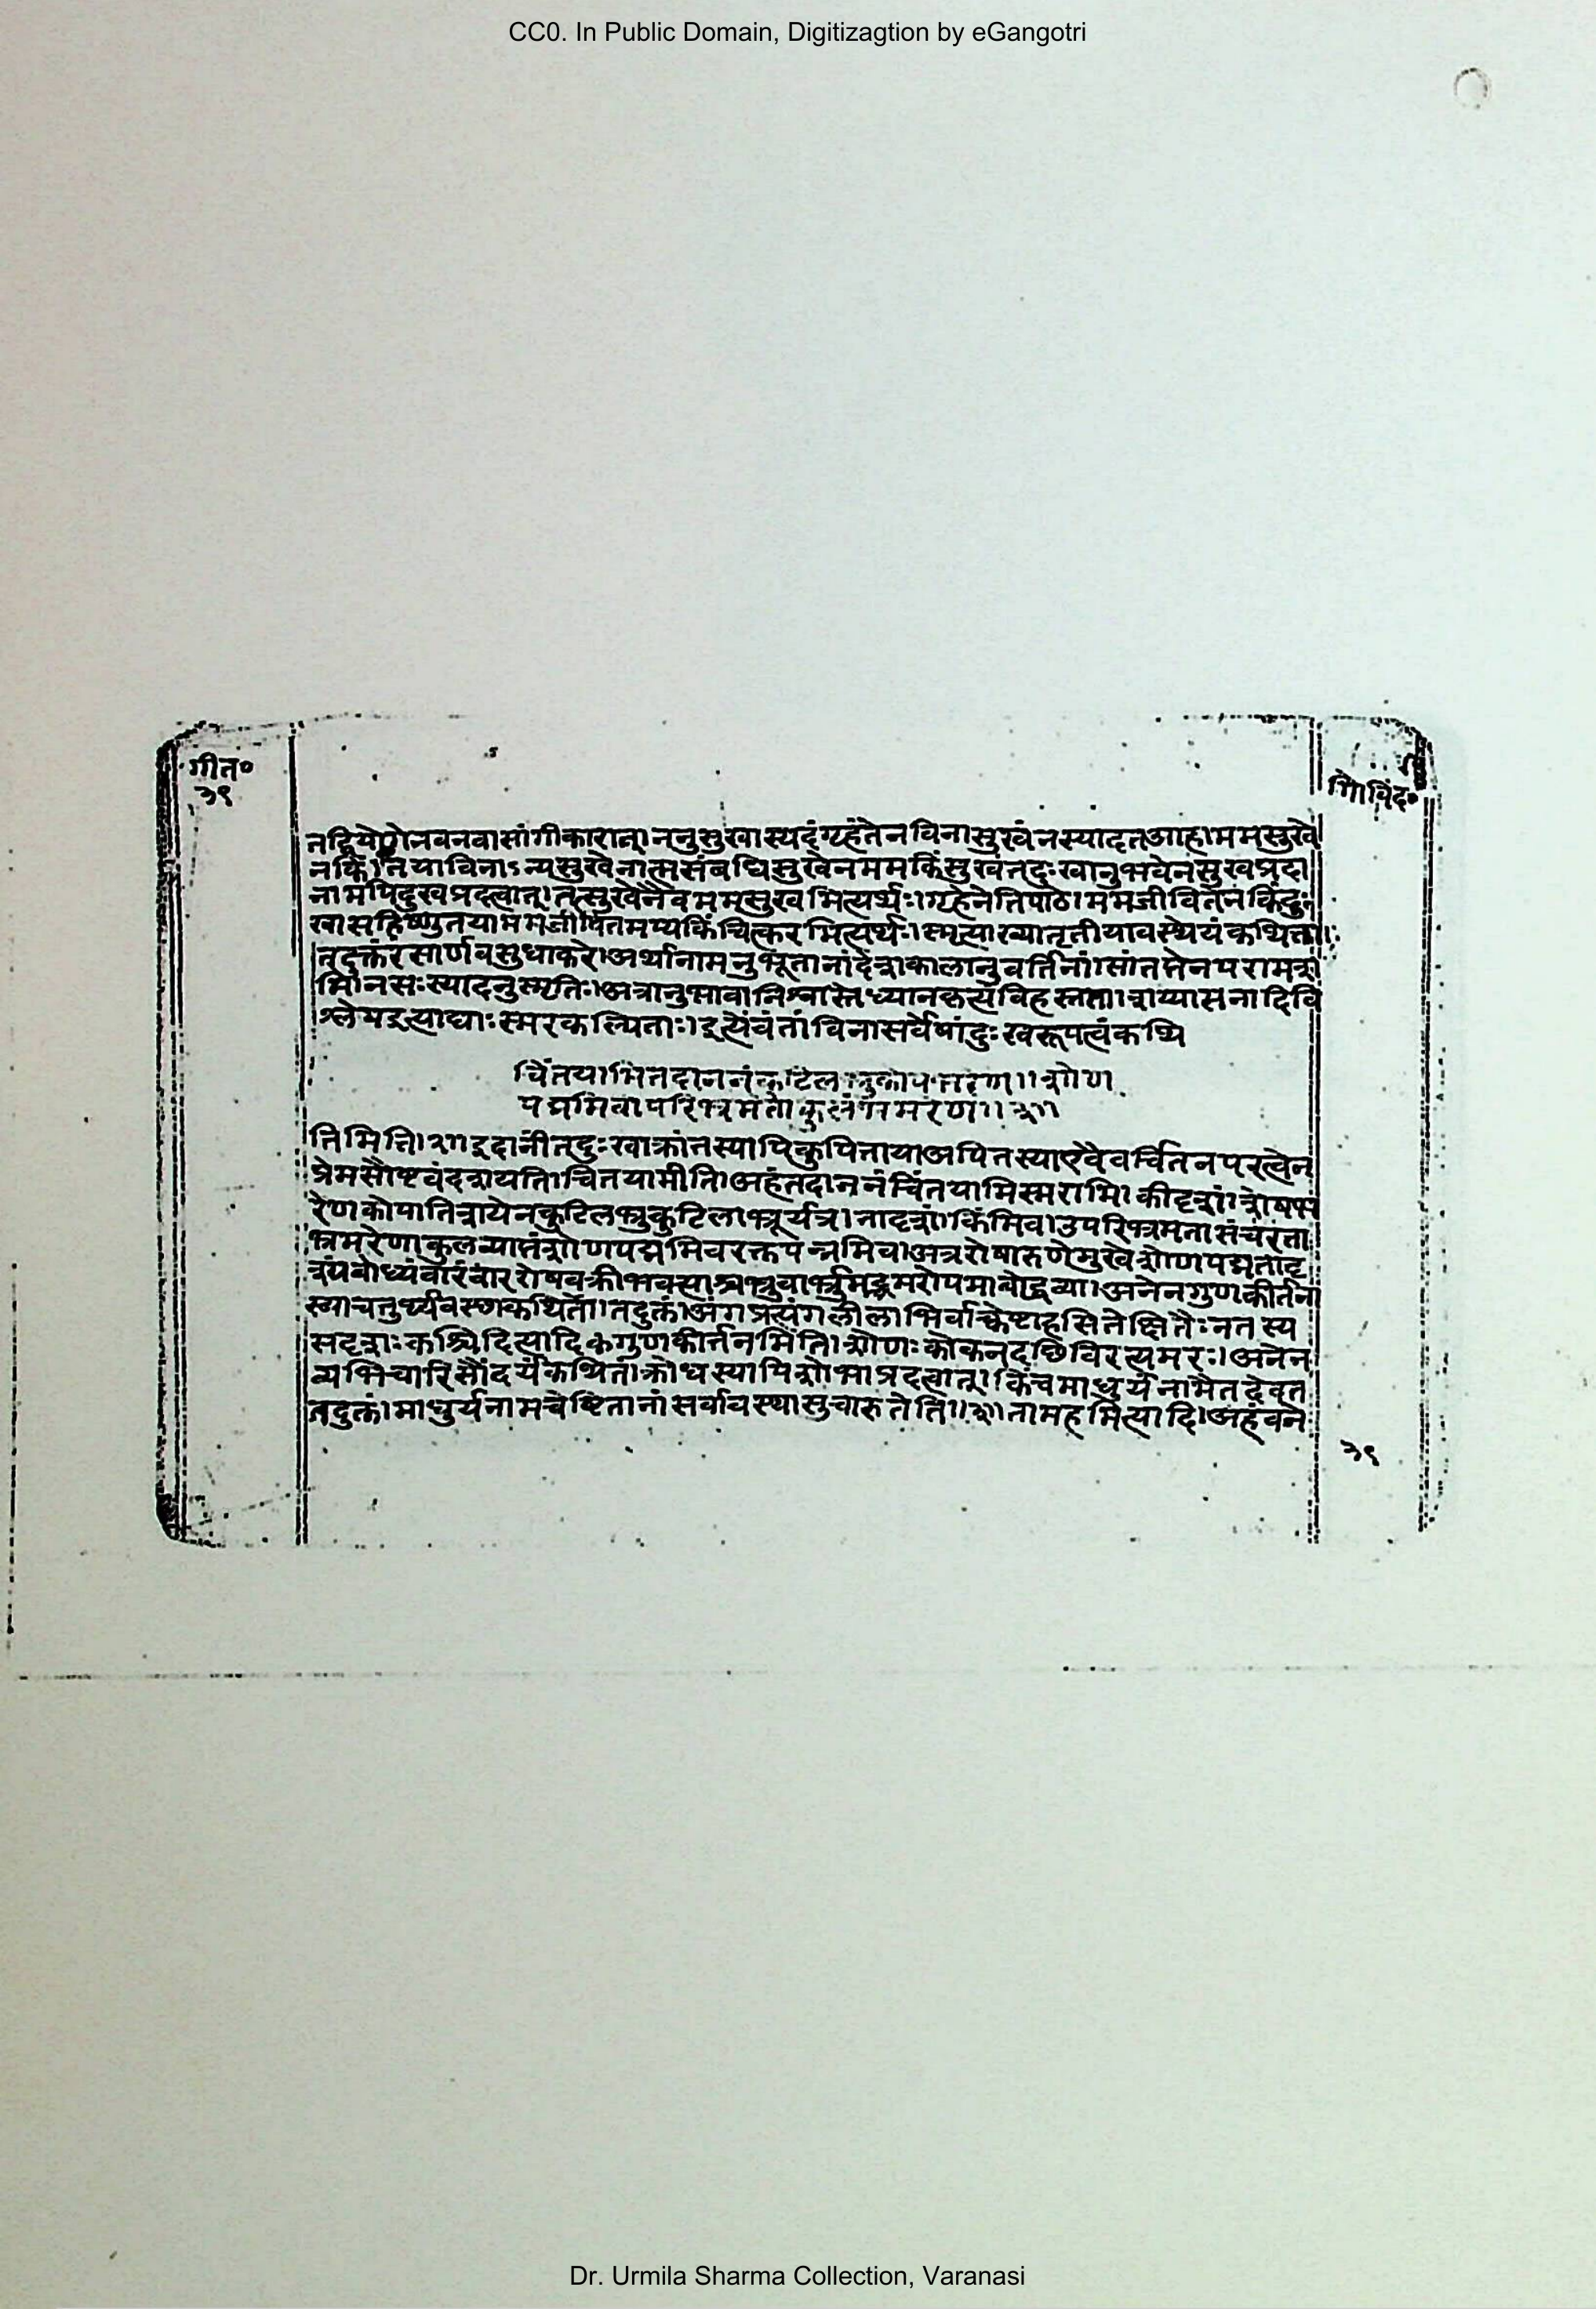 CC0. In Public Domain, Digitizagtion by eGangotri
गीत०
३९
गोविंद०
तद्वियोगेनवनवासांगीकारात्। ननुसुखास्यदंगृहंतेनविनासुखंनस्यादतआह।ममसुखे
नकिं।तयाविनाऽन्यसुखेनात्मसंबंधिसुखेनममकिंसुखंतदुःखानुभवेनसुखप्रदा
नामपिदुखप्रदत्वात्।तत्सुखेनैवममसुखमित्यर्थः।गृहेनेतिपाठे।ममजीवितेनकिंदुः
खासहिष्णुतयाममजीवितमप्यकिंचित्करमित्यर्थः।स्मृत्याख्यातृतीयावस्थेयंकथिता।
तदुक्तंरसार्णवसुधाकरे।अर्थानामनुभूतानांदेशकालानुवर्तिनां।सांतत्तेनपरामर्शो
मानसःस्यादनुस्मृतिः।अत्रानुभावानिश्वासोध्यानकृत्यविहस्तता।शय्यासनादिवि
श्लेषइत्याद्याःस्मरकल्पिताः।इत्येवंतांविनासर्वेषांदुःखरूपत्वंकथि
चिंतयामितदाननंकुटिलभ्रुकोपभरेण।।शोण
पद्ममिवोपरिभ्रमताकुलंभ्रमरेण।।३।।
तमिति।२।इदानींतदुःखाक्रांतस्यापिकुपितायाअपितस्याएवैवचिंतनपरत्वेन
प्रेमसौष्टवंदर्शयति।चिंतयामीति।अहंतदाननंचिंतयामिस्मरामि।कीदृशं।रोषभ
रेणकोपातिशयेनकुटिलभ्रुकुटिलाभ्रूर्यत्र।तादृशं।किमिव।उपरिभ्रमतासंचरता
भ्रमरेणाकुलव्याप्तंशोणपद्ममिवरक्तपद्ममिव।अत्ररोषारुणेमुखेशोणपद्मतोदृ
श्यंबोध्यंवारंवाररोषवक्रीभवत्याश्चभ्रुवोर्भ्रमद्भ्रमरोपमाबोद्धव्या।अनेनगुणकीर्तना
ख्याचतुर्थ्यवस्थाकथिता।तदुक्तं।अंगप्रत्यंगलीलाभिर्वाक्चेष्टाहसितेक्षितैःनतस्य
सदृशःकश्चिदित्यादिकगुणकीर्त्तनमिति।शोणःकोकनदछविरत्यमरः।अनेन
व्यभिचारिसौंदर्यंकथितं।क्रोधस्यापिशोभाप्रदत्वात्।किंचमाधुर्यंनामैतदेवत
तदुक्तं।माधुर्यनामचेष्टितानांसर्वावस्थासुचारुतेति।।३।।तामहमित्यादि।अहंवने
३९
Dr. Urmila Sharma Collection, Varanasi